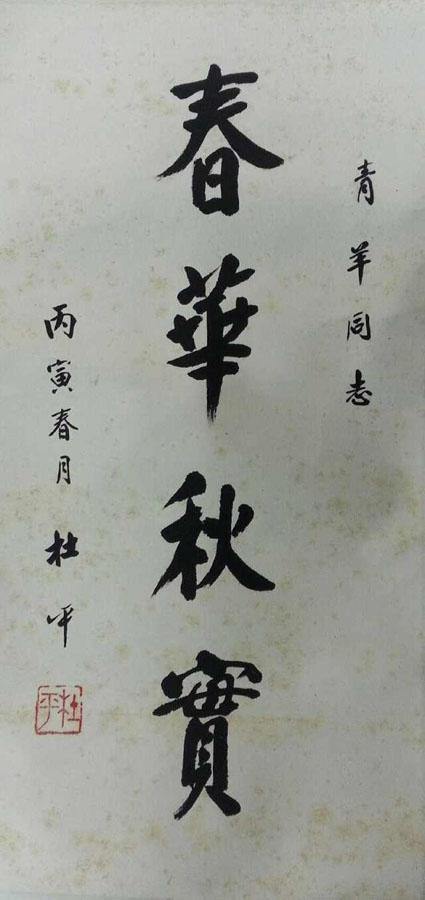 青羊同志
春華秋實
丙寅春月 杜平
杜平